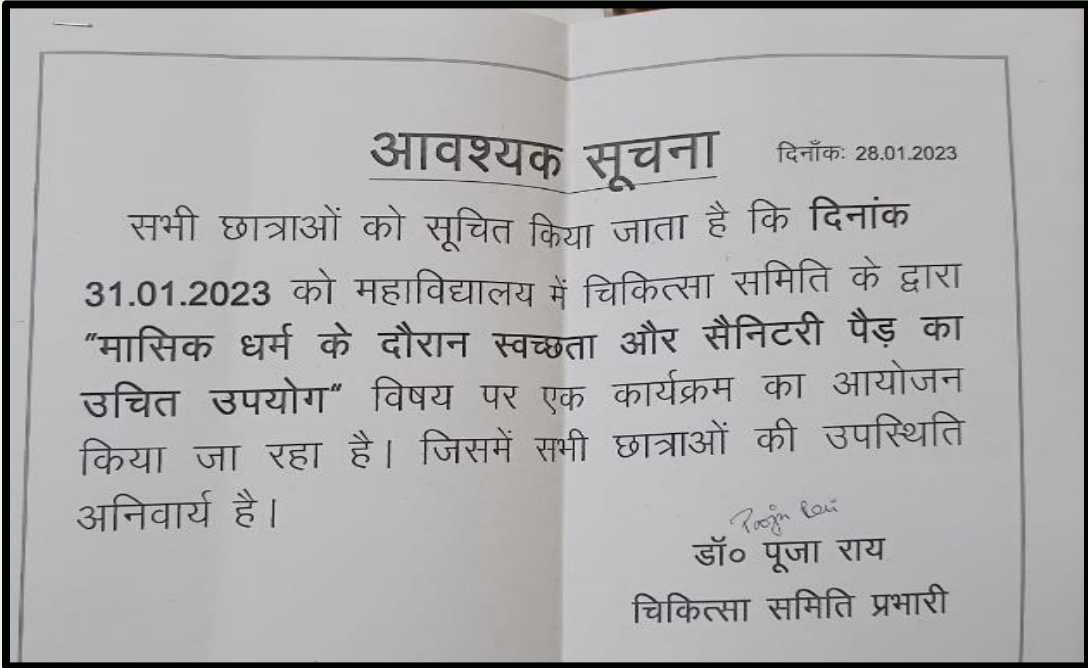 आवश्यक सूचना दिनाँक: 28.01.2023
सभी छात्राओं को सूचित किया जाता है कि दिनांक
31.01.2023 को महाविद्यालय में चिकित्सा समिति के द्वारा
"मासिक धर्म के दौरान स्वच्छता और सैनिटरी पैड़ का
उचित उपयोग" विषय पर एक कार्यक्रम का आयोजन
किया जा रहा है। जिसमें सभी छात्राओं की उपस्थिति
अनिवार्य है।
Pooja Rai
डॉ० पूजा राय
चिकित्सा समिति प्रभारी